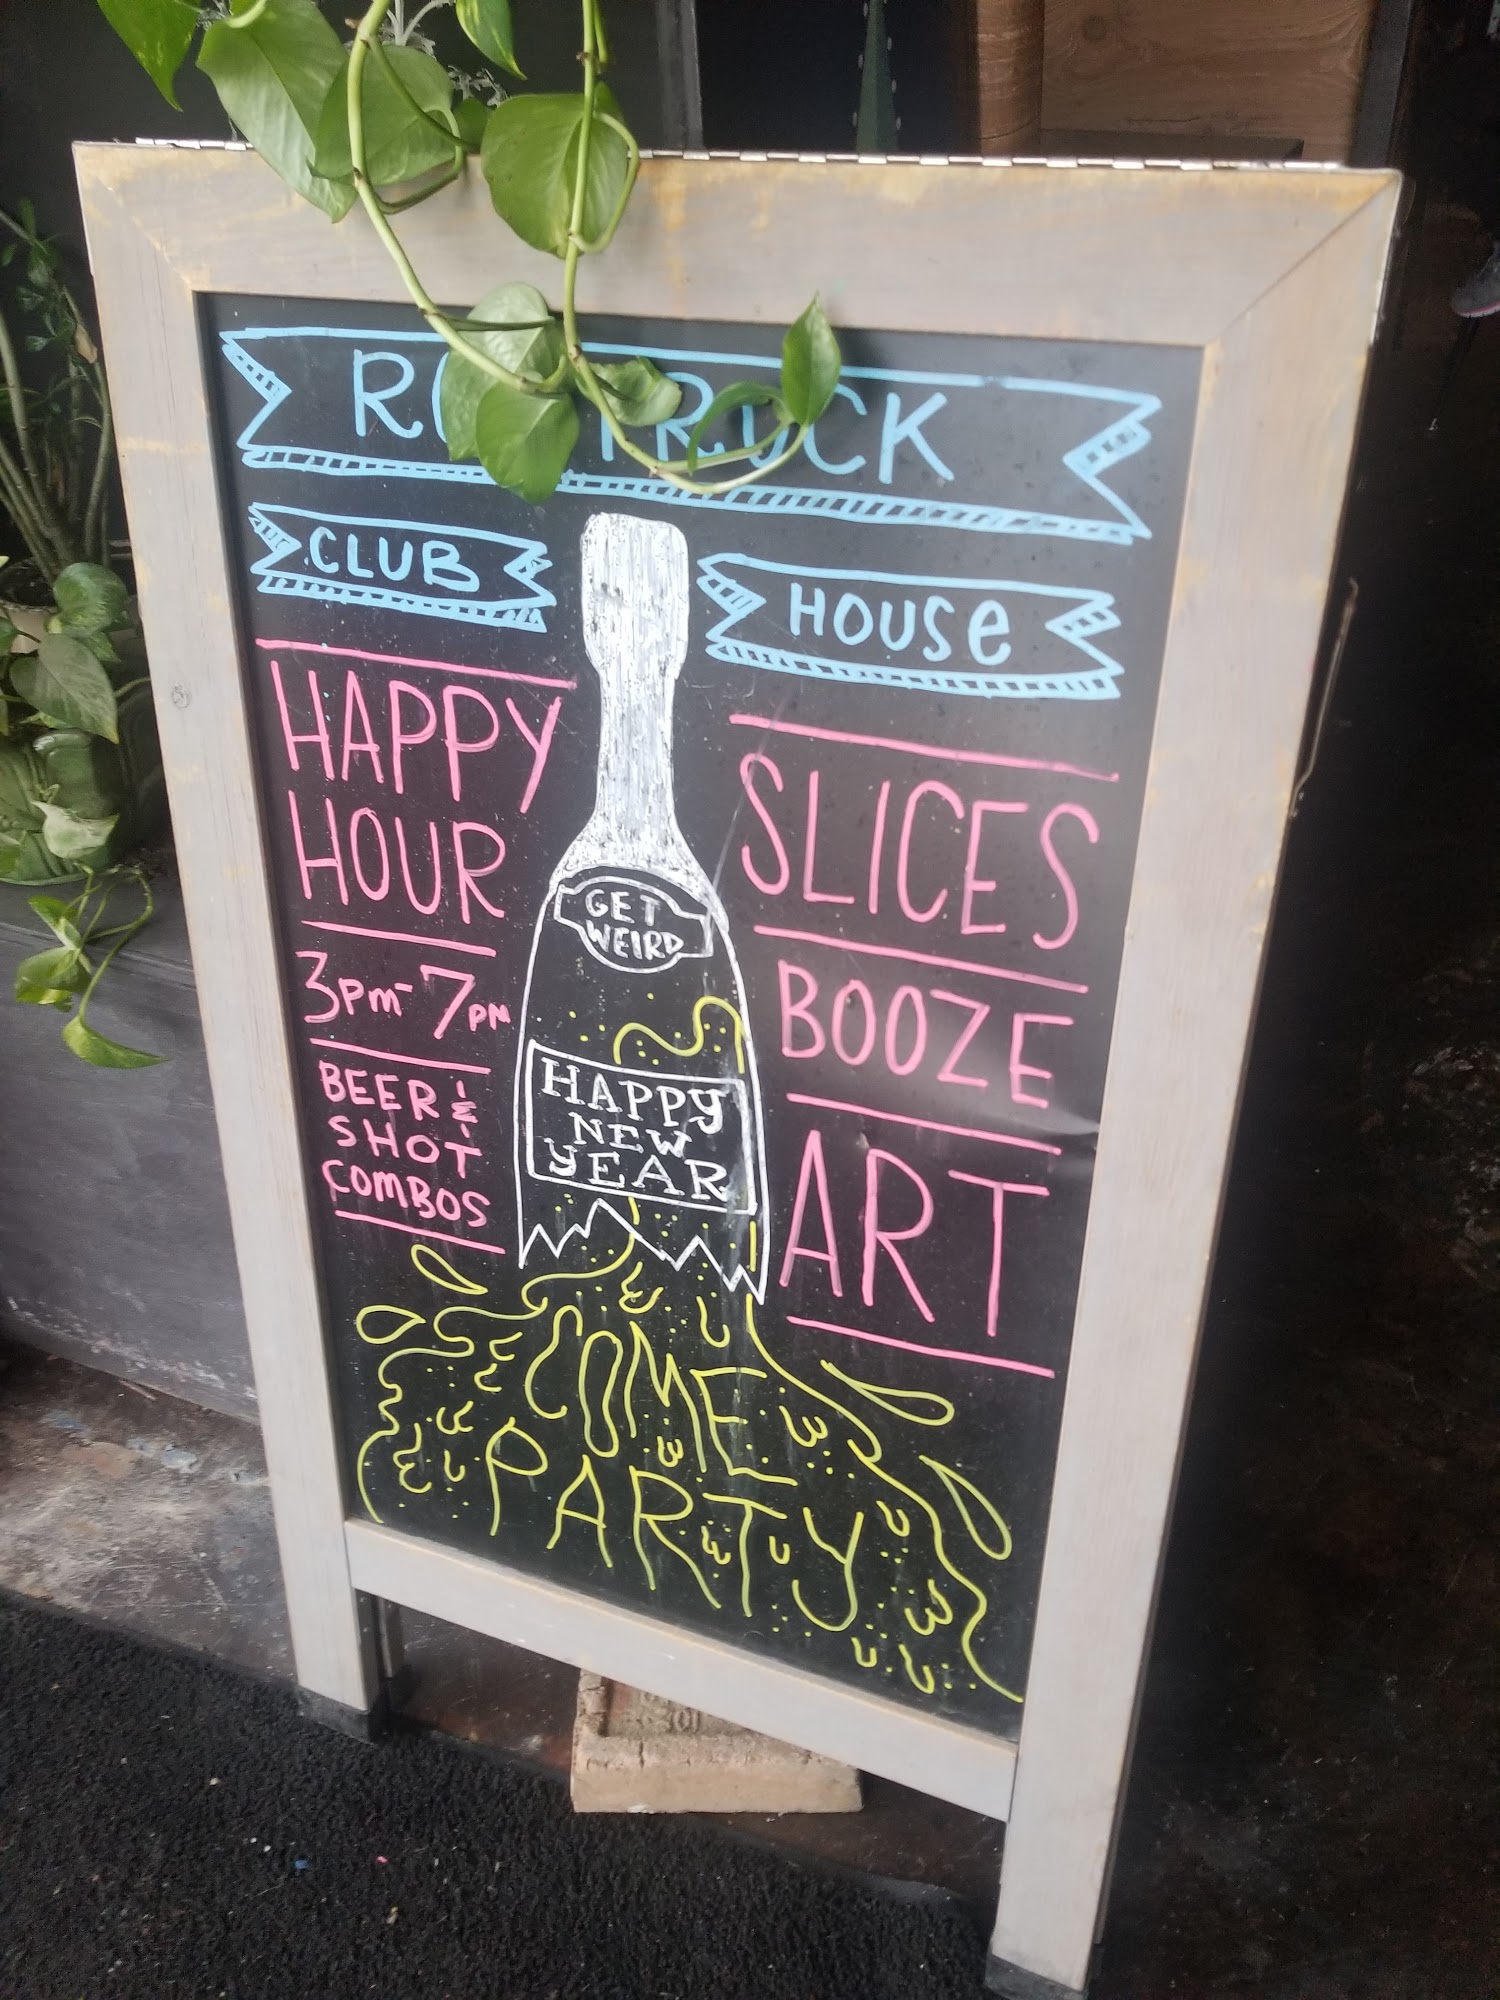 CLUB
HOUSE
HAPPY
HOUR
3pm-7pm
BEER &
SHOT
COMBOS
GET
WEIRD
HAPPY
NEW
YEAR
SLICES
BOOZE
ART
COME
PARTY